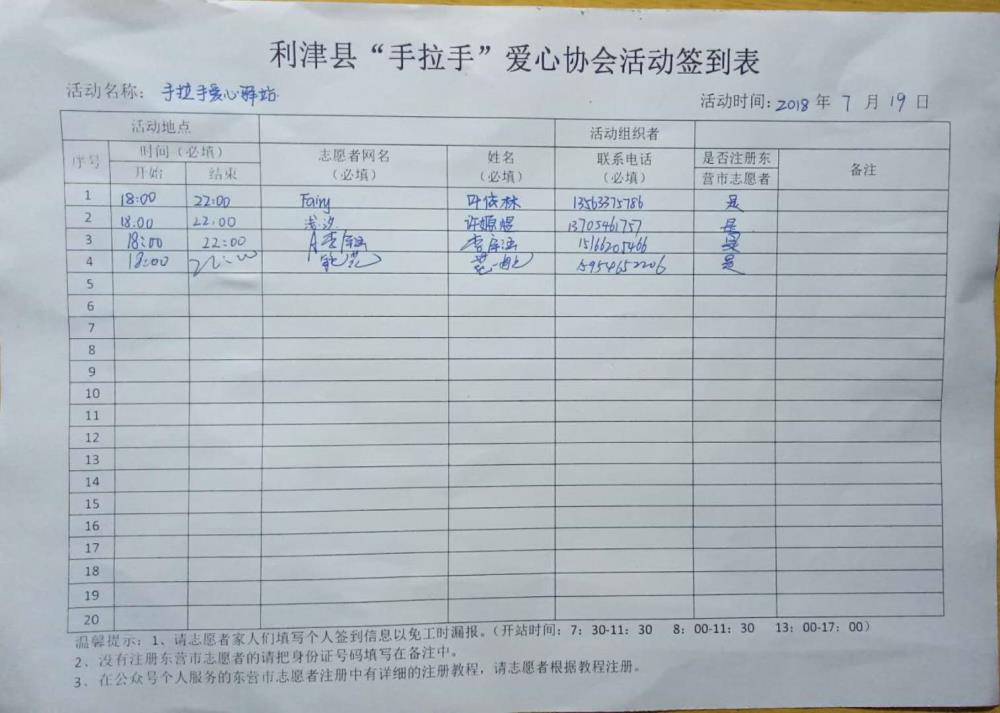 利津县“手拉手”爱心协会活动签到表
活动名称：手拉手爱心驿站
活动时间：2018年7月19日
活动地点 活动组织者
序号 时间（必填） 志愿者网名（必填） 姓名（必填） 联系电话（必填） 是否注册东营市志愿者 备注
开始 结束
1 18:00 22:00 Fairy 叶依林 13563375786 是
2 18:00 22:00 浅汐 13705461757 是
3 18:00 22:00 15166205466 是
4 18:00 22:00 15954652206 是
5
6
7
8
9
10
11
12
13
14
15
16
17
18
19
20
温馨提示：1、请志愿者家人们填写个人签到信息以免工时漏报。（开站时间：7：30-11：30 8：00-11：30 13：00-17：00）
2、没有注册东营市志愿者的请把身份证号码填写在备注中。
3、在公众号个人服务的东营市志愿者注册中有详细的注册教程，请志愿者根据教程注册。